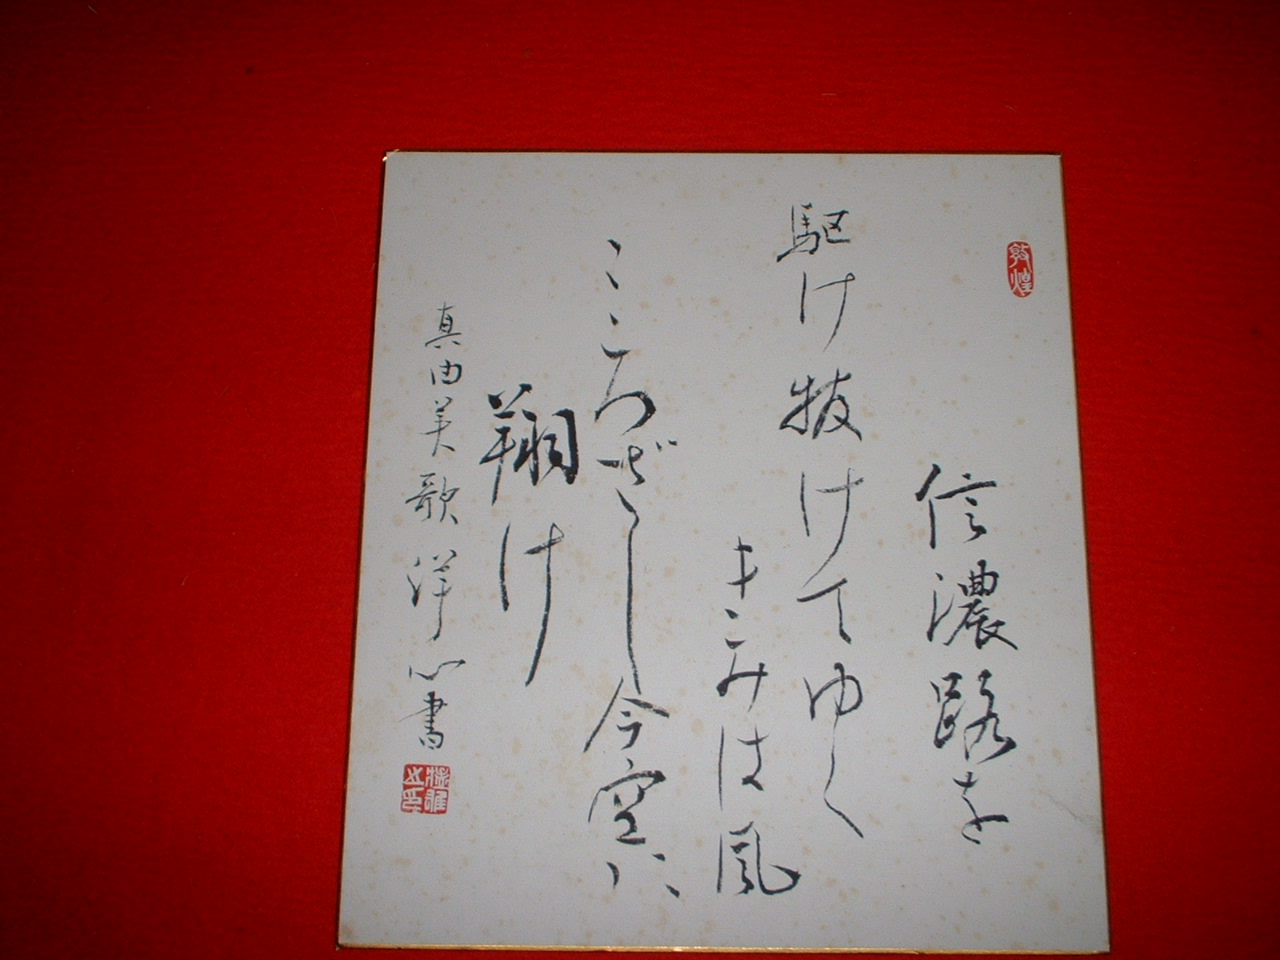 敦煌
信濃路を
駆け抜けてゆく
きみは風
こころざし今空に
翔け
真由美歌 洋心書